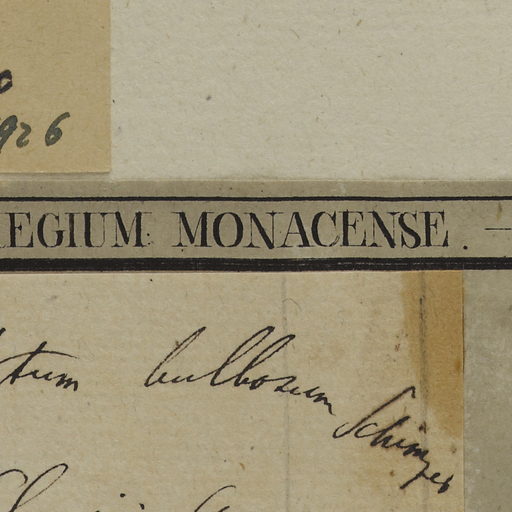 926
REGIUM MONACENSE. —
tum bulbosum Schimper